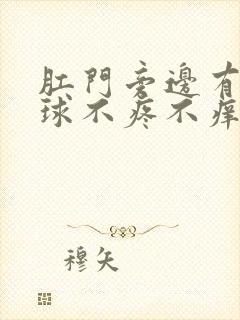 肛門旁邊有
球不疼不癢
穆矢